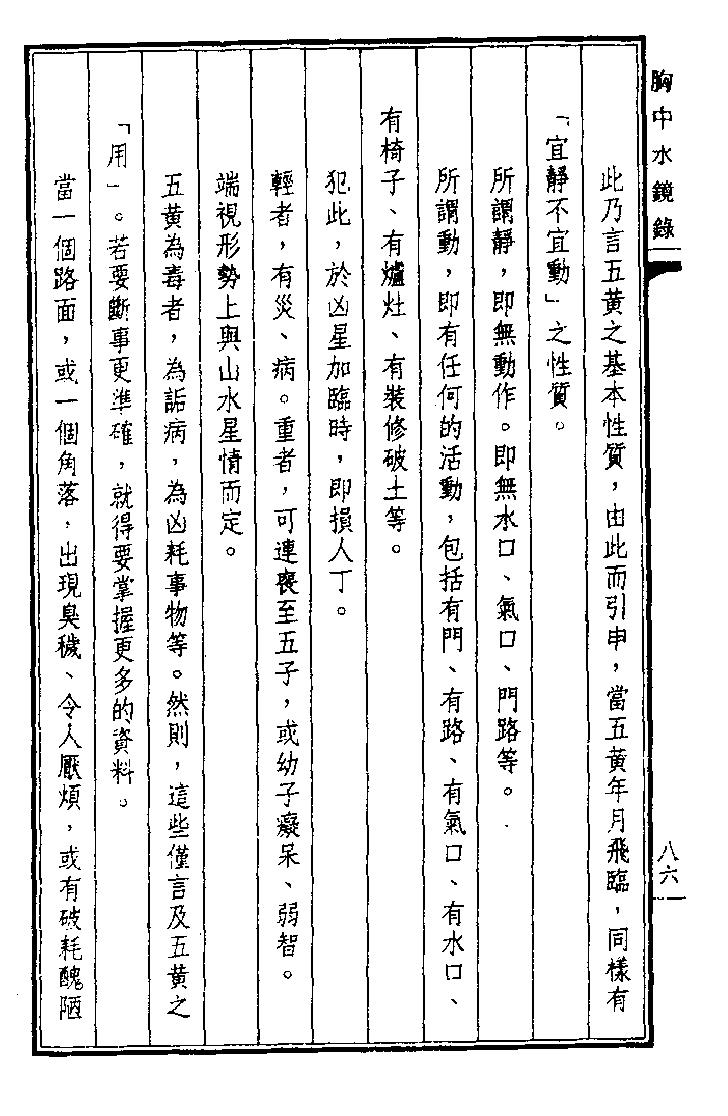 胸中水鏡錄
八六
此乃言五黃之基本性質，由此而引申，當五黃年月飛臨，同樣有
「宜靜不宜動」之性質。
所謂靜，即無動作。即無水口、氣口、門路等。
所謂動，即有任何的活動，包括有門、有路、有氣口、有水口、
有椅子、有爐灶、有裝修破土等。
犯此，於凶星加臨時，即損人丁。
輕者，有災、病。重者，可連喪至五子，或幼子癡呆、弱智。
端視形勢上與山水星情而定。
五黃為毒者，為詬病，為凶耗事物等。然則，這些僅言及五黃之
「用」。若要斷事更準確，就得要掌握更多的資料。
當一個路面，或一個角落，出現臭穢、令人厭煩，或有破耗醜陋